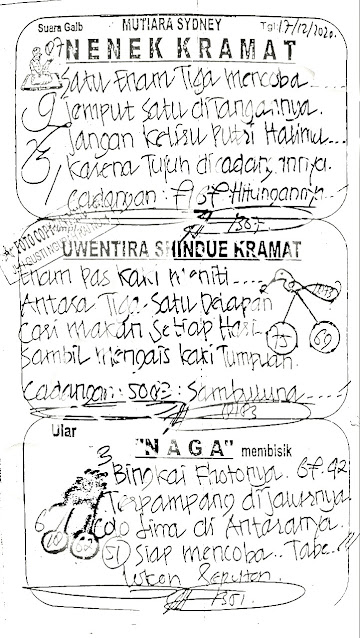 Suara Gaib MUTIARA SYDNEY Tgl 17/12/2020
NENEK KRAMAT
07
Satu Enam Tiga mencoba
Jemput satu ditangannya.
Jangan keliru Putri Halimu
karena Tujuh dicadangannya.
Cadangan: Hitungannya
FOTO COPY
UWENTIRA SHINDUE KRAMAT
Enam pas kaki meniti
Antara Tiga Satu Delapan
Cari makan Setiap Hari
Sambil mengais kaki Tumpuan.
75 60
Cadangan: 5083:
Ular
"NAGA" membisik
3
Bingkai Fhotonya. 67.92
Terpampang dijalurnya
6
Colo lima di Antaranya
51 Siap mencoba.. Tabe
1351